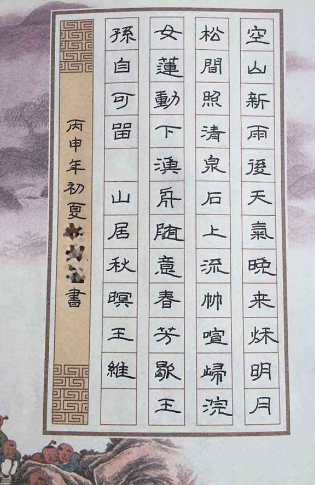 空山新雨後天氣晚来秋明月
松間照清泉石上流竹喧歸浣
女蓮動下漁舟随意春芳歇王
孫自可留 山居秋暝王維
丙申年初夏書